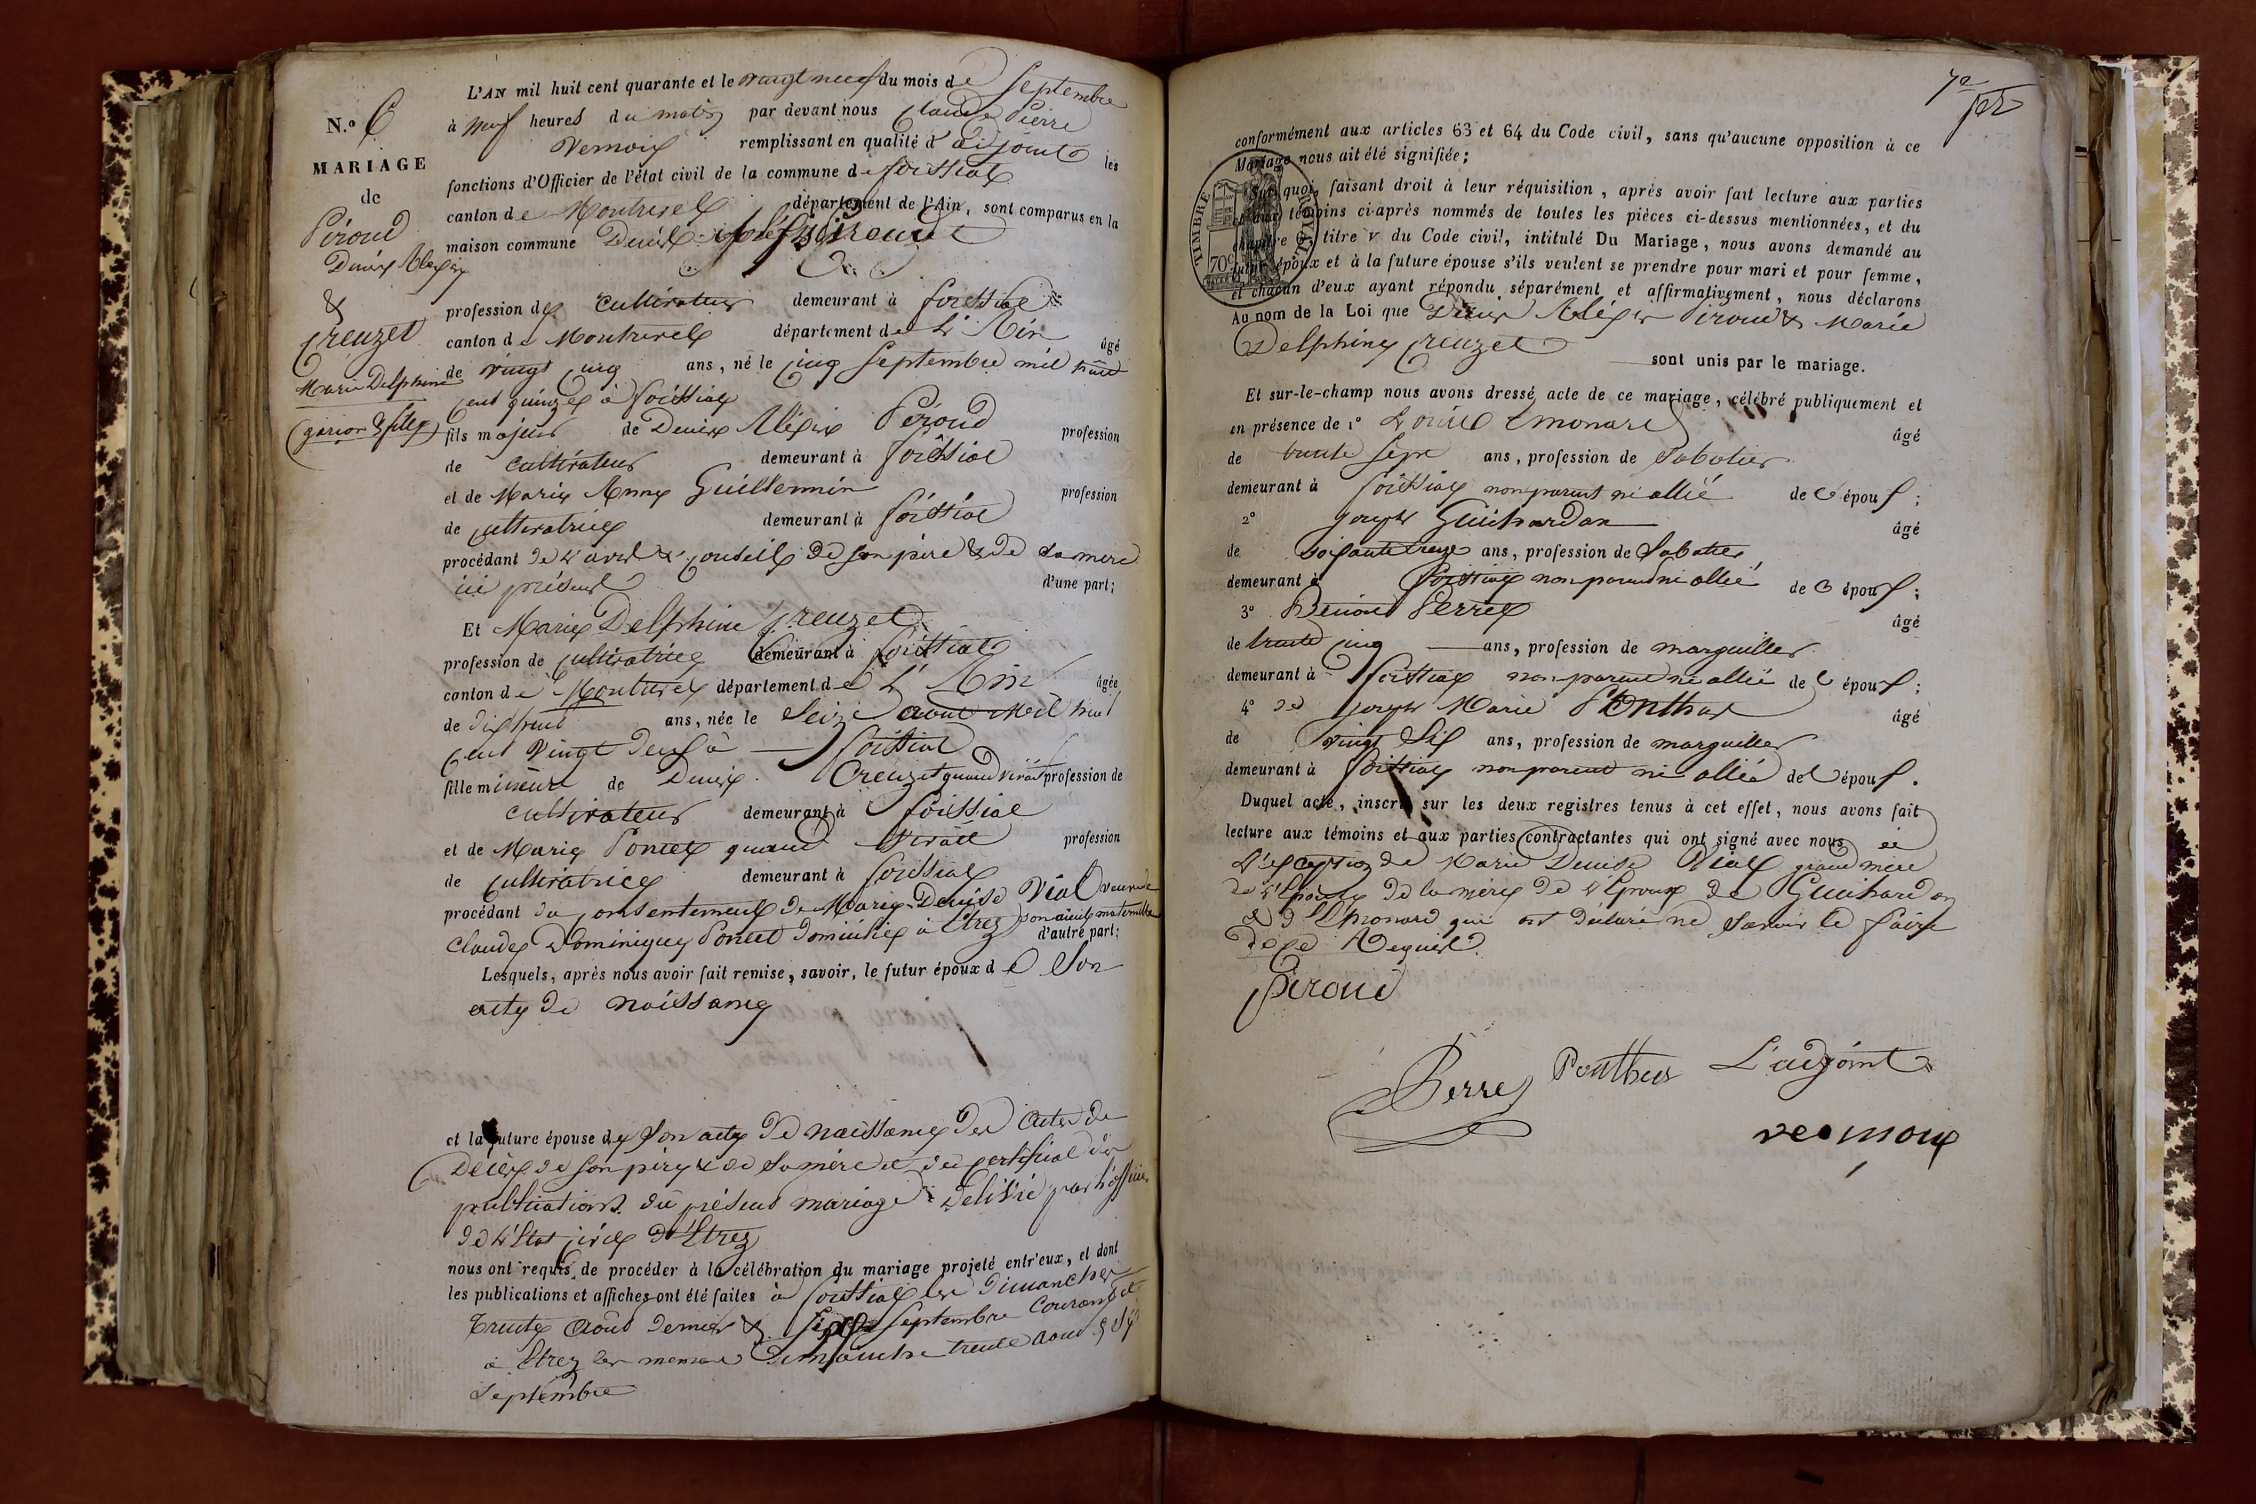 N.º 6
MARIAGE
de
Péroud
Denis Alexis
&
Creuzet
Marie Delphine
(garçon & fille)
L'AN mil huit cent quarante et le vingt neuf du mois de Septembre
à neuf heures du matin par devant nous Claude Pierre
remplissant en qualité d'adjoint les
fonctions d'Officier de l'état civil de la commune de foissiat
canton de Montrevel département de l'Ain, sont comparus en la
maison commune Denis
profession de cultivateur demeurant à foissiat
canton de Montrevel département de L'Ain âgé
de vingt cinq ans, né le cinq septembre mil huit
cent quinze à foissiat
fils majeur de Denis Alexis Péroud profession
de cultivateur demeurant à foissiat
et de Marie Anne Guillermin profession
de cultivatrice demeurant à foissiat
procédant de l'avis & conseil de son père & de sa mère
ici présent d'une part;
Et Marie Delphine Creuzet
profession de cultivatrice demeurant à foissiat
canton de Montrevel département de L'Ain âgée
de dix huit ans, née le seize aout mil huit
cent vingt deux à foissiat
fille mineure de Denis Creuzet quand vivait profession de
cultivateur demeurant à foissiat
et de Marie Poncet quand vivait profession
de cultivatrice demeurant à foissiat
procédant du consentement de Marie Denise Vial veuve de
Claude Dominique Poncet domiciliée à Etrez son aieule maternelle d'autre part;
Lesquels, après nous avoir fait remise, savoir, le futur époux de son
acte de naissance
et la future épouse de son acte de naissance des actes de
décès de son père & de sa mère et du certificat de
publications du présent mariage délivré par l'officier
de l'État civil d'Etrez
nous ont requis de procéder à la célébration du mariage projeté entr'eux, et dont
les publications et affiches ont été faites à foissiat les dimanches
trente aout dernier & six septembre courant et
à Etrez les memes dimanche trente aout & six
septembre
72
conformément aux articles 63 et 64 du Code civil, sans qu'aucune opposition à ce
Mariage nous ait été signifiée;
Sur quoi, faisant droit à leur réquisition, après avoir fait lecture aux parties
et aux témoins ci-après nommés de toutes les pièces ci-dessus mentionnées, et du
chapitre 6, titre v du Code civil, intitulé Du Mariage, nous avons demandé au
futur époux et à la future épouse s'ils veulent se prendre pour mari et pour femme,
et chacun d'eux ayant répondu séparément et affirmativement, nous déclarons
TIMBRE ROYAL
70c
Au nom de la Loi que Denis Alexis Péroud & Marie
Delphine Creuzet sont unis par le mariage.
Et sur-le-champ nous avons dressé acte de ce mariage, célébré publiquement et
en présence de 1º Louis Emonard âgé
de trente sept ans, profession de sabotier
demeurant à foissiat non parent ni allié de l'époux;
2º joseph Guichardan âgé
de soixante treize ans, profession de Sabotier
demeurant à foissiat non parent ni allié de l'époux;
3º Benoit Perret âgé
de trente cinq ans, profession de marguiller
demeurant à foissiat non parent ni allié de l'époux;
4º de joseph Marie Ponthus âgé
de vingt six ans, profession de marguiller
demeurant à foissiat non parent ni allié de l'époux.
Duquel acte, inscrit sur les deux registres tenus à cet effet, nous avons fait
lecture aux témoins et aux parties contractantes qui ont signé avec nous
L'exception de Marie Denise Vial grand mère
de l'Epouse de la mère de l'Epoux de Guichardan
& d'Emonard qui ont déclaré ne savoir le faire
de ce Requis.
Péroud
Perret
Ponthus
L'adjoint